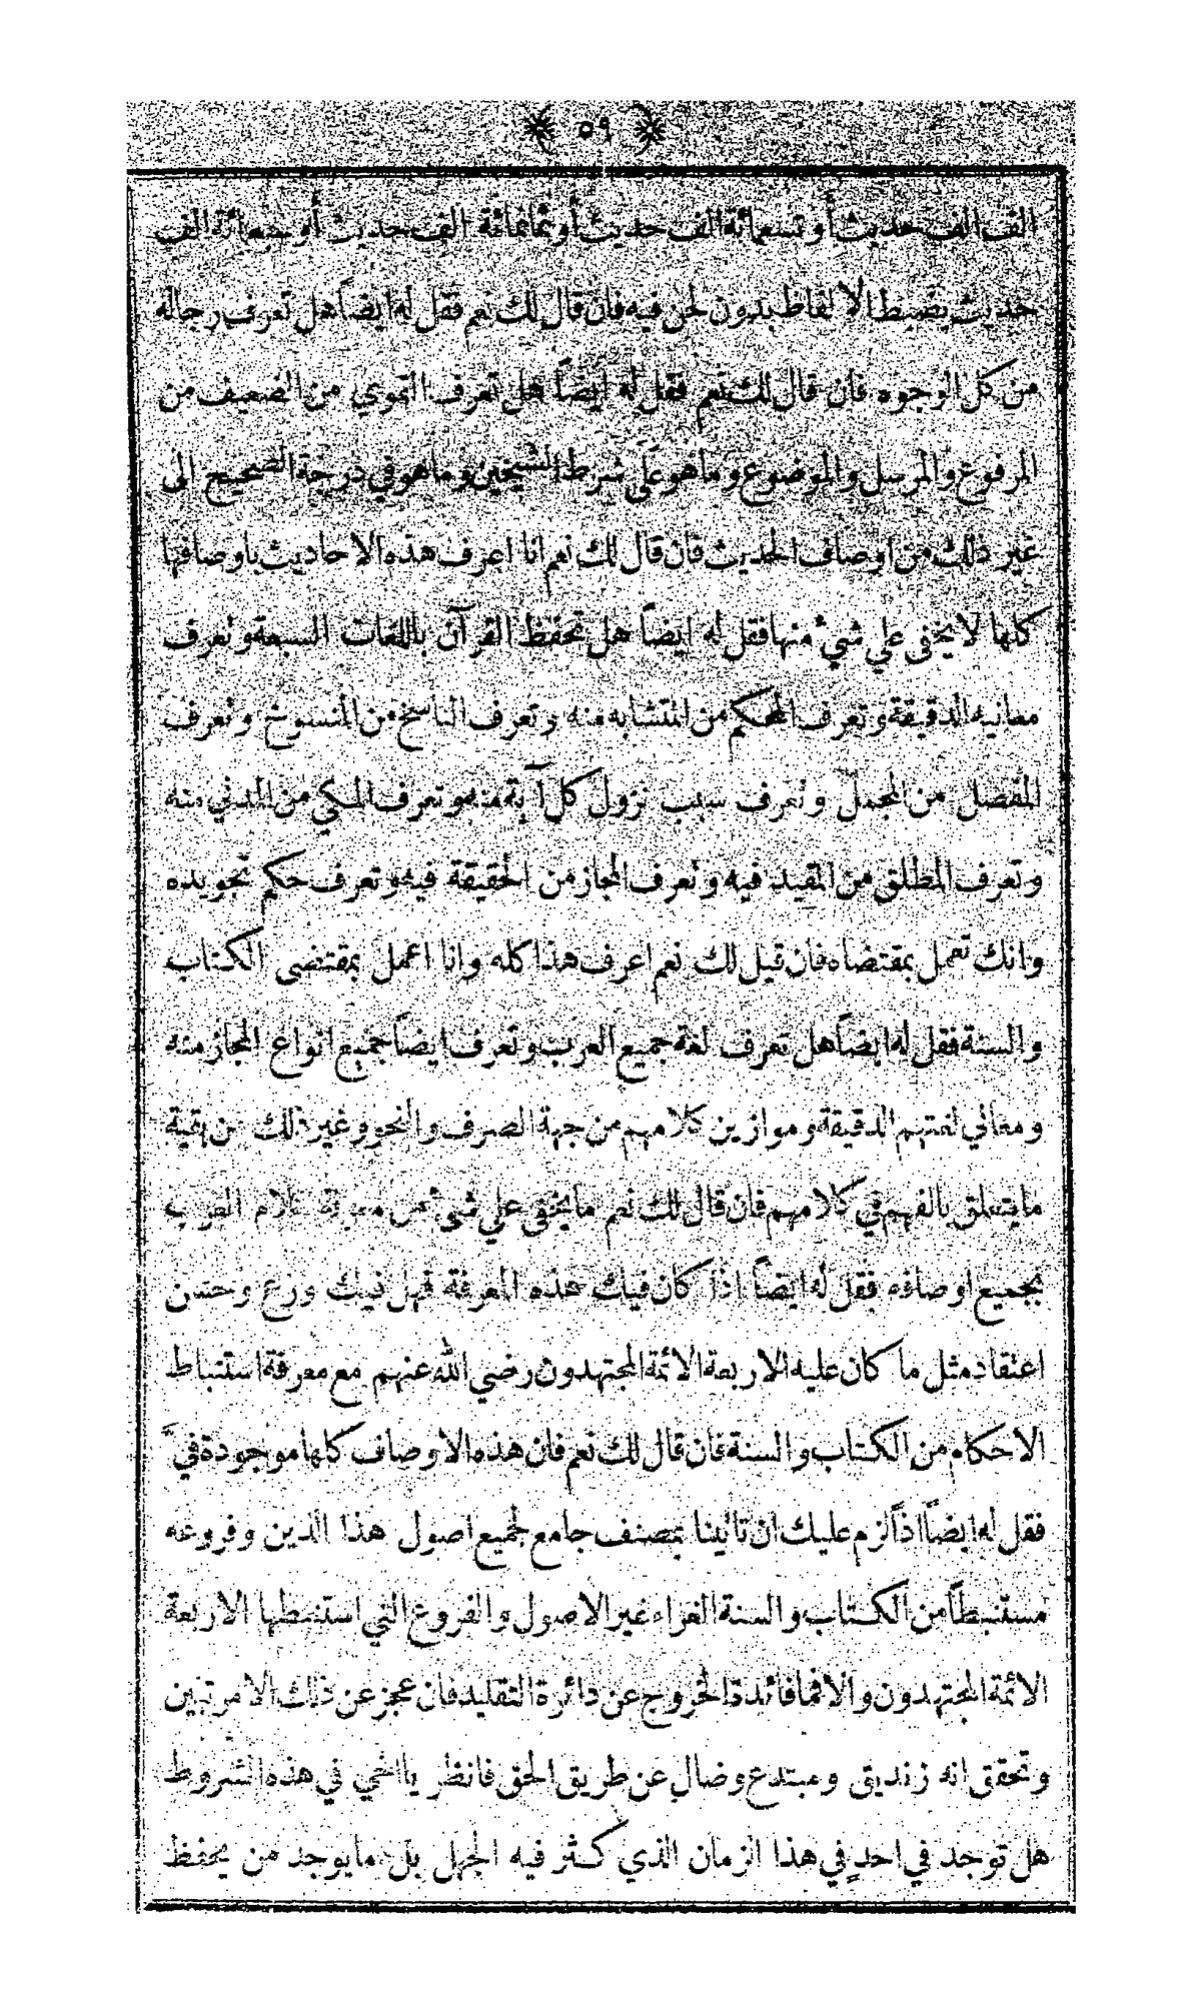 ٥٩
الف الف حديث أو تسعمائة الف حديث أو ثمانمائة الف حديث أو سبعمائة الف
حديث بضبط الالفاظ بدون لحن فيه فان قال لك نعم فقل له ايضاً هل تعرف رجاله
من كل الوجوه فان قال لك نعم فقل له ايضاً هل تعرف القوي من الضعيف من
المرفوع والمرسل والموضوع وما هو على شرط الشيخين وما هو في درجة الصحيح الى
غير ذلك من اوصاف الحديث فان قال لك نعم انا اعرف هذه الاحاديث باوصافها
كلها لا يخفى علي شيء منها فقل له ايضاً هل تحفظ القرآن باللغات السبعة وتعرف
معانيه الدقيقة وتعرف المحكم من المتشابه منه وتعرف الناسخ من المنسوخ وتعرف
المفصل من المجمل وتعرف سبب نزول كل آية منه وتعرف المكي من المدني منه
وتعرف المطلق من المقيد فيه وتعرف المجاز من الحقيقة فيه وتعرف حكم تجويده
وانك تعمل بمقتضاه فان قيل لك نعم اعرف هذا كله وانا اعمل بمقتضى الكتاب
والسنة فقل له ايضاً هل تعرف لغة جميع العرب وتعرف ايضاً جميع انواع المجاز منه
ومعاني لغتهم الدقيقة وموازين كلامهم من جهة الصرف والنحو وغير ذلك من بقية
ما يتعلق بالفهم في كلامهم فان قال لك نعم ما يخفى علي شيء من معرفة كلام العرب
بجميع اوصافه فقل له ايضاً اذا كان فيك هذه المعرفة فهل فيك ورع وحسن
اعتقاد مثل ما كان عليه الاربعة الائمة المجتهدون رضي الله عنهم مع معرفة استنباط
الاحكام من الكتاب والسنة فان قال لك نعم فان هذه الاوصاف كلها موجودة فيَّ
فقل له ايضاً اذاً لزم عليك ان تأتينا بمصنف جامع لجميع اصول هذا الدين وفروعه
مستنبطاً من الكتاب والسنة الغراء غير الاصول والفروع التي استنبطها الاربعة
الائمة المجتهدون والا فما فائدة الخروج عن دائرة التقليد فان عجز عن ذلك الامر تبين
وتحقق انه زنديق ومبتدع وضال عن طريق الحق فانظر يا اخي في هذه الشروط
هل توجد في احدٍ في هذا الزمان الذي كثر فيه الجهل بل ما يوجد من يحفظ